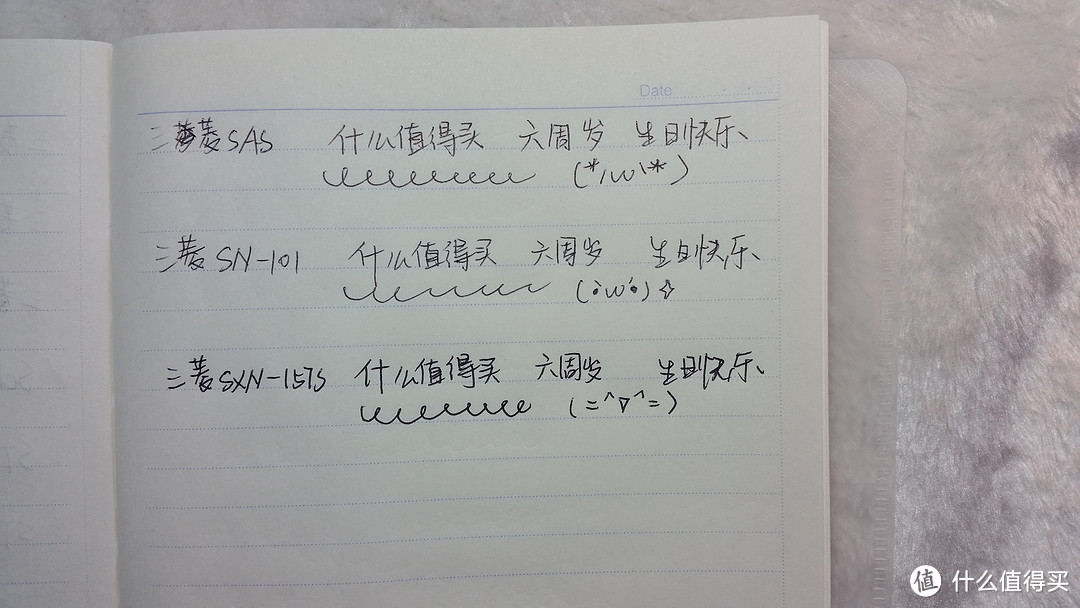 Date
三菱SAS 什么值得买 六周岁 生日快乐、
(*/ω\*)
三菱 SN-101 什么值得买 六周岁 生日快乐、
(•̀ω•́)✧
三菱 SXN-157S 什么值得买 六周岁 生日快乐、
(=^▽^=)
值 什么值得买